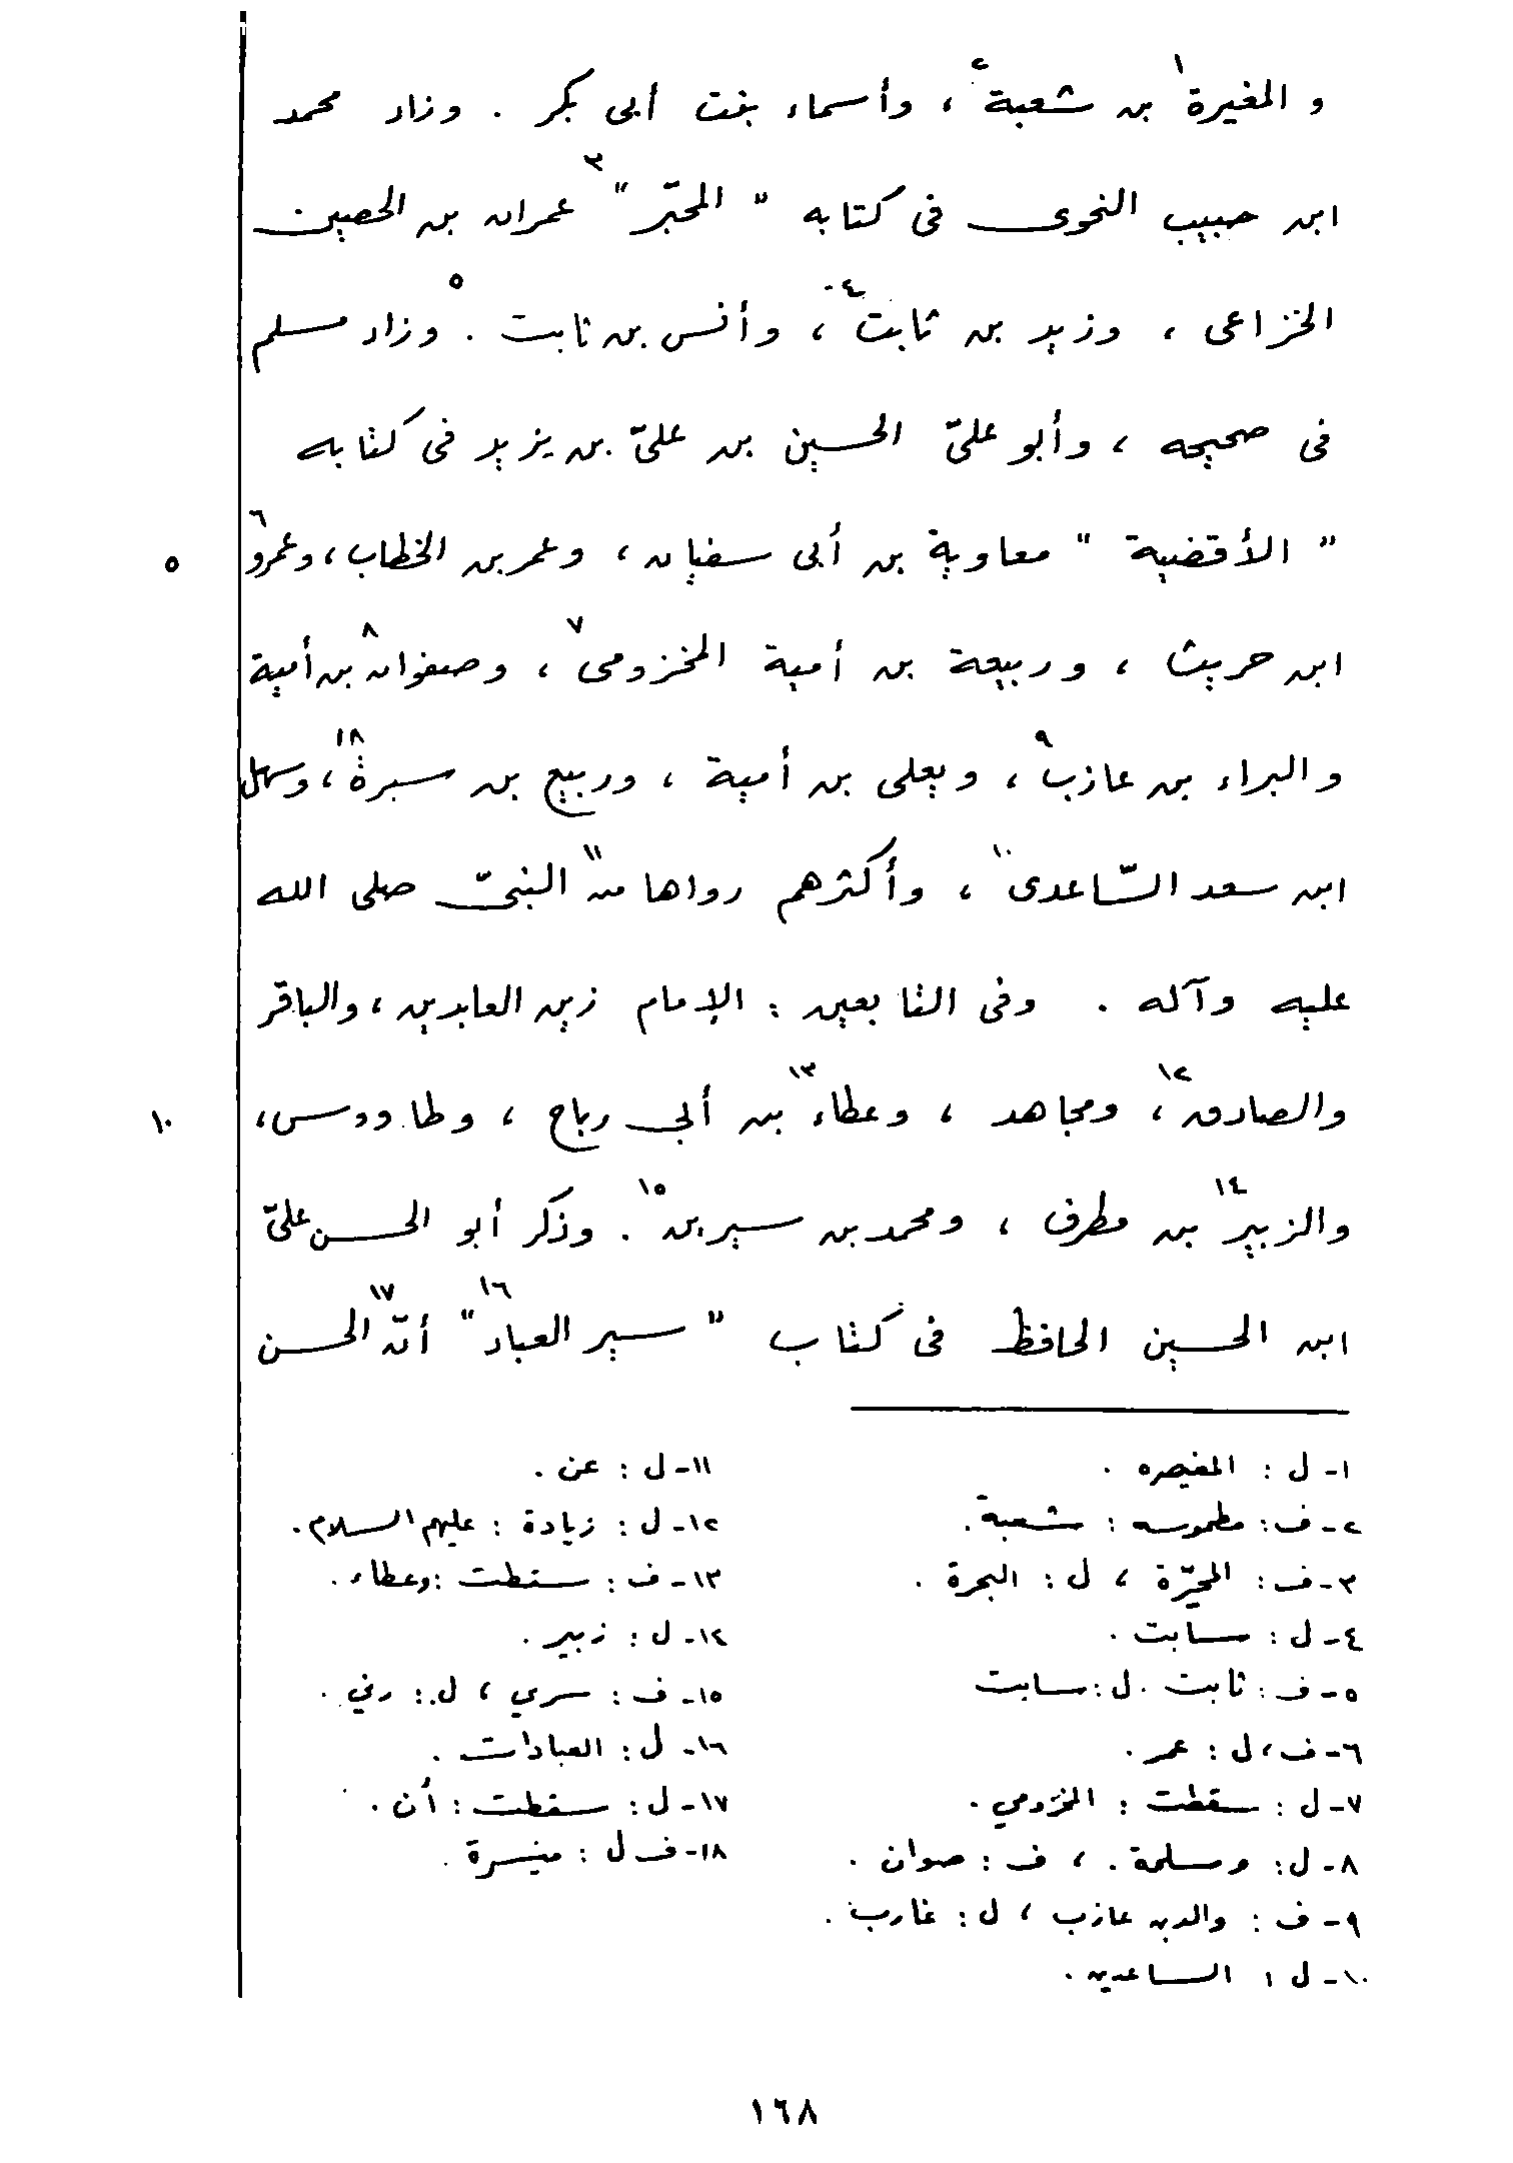 و المغيرة١ بن شعبة٢ ، وأسماء بنت أبى بكر . وزاد محمد
ابن حبيب النحوى فى كتابه " المحبّر "٣ عمران بن الحصين
الخزاعى ، وزيد بن ثابت٤ ، وأنس بن ثابت٥ . وزاد مسلم
فى صحيحه ، وأبو علىّ الحسين بن علىّ بن يزيد فى كتابه
" الأقضية " معاوية بن أبى سفيان ، وعمر بن الخطاب ، وعمرو٦
٥
ابن حريث ، وربيعة بن أمية المخزومى٧ ، وصفوان٨ بن أمية
والبراء بن عازب٩ ، ويعلى بن أمية ، وربيع بن سبرة١٨ ، وسهل
ابن سعد السّاعدى١٠ ، وأكثرهم رواها من١١ النبىّ صلى الله
عليه وآله . وفى التابعين : الإمام زين العابدين ، والباقر
والصادق١٢ ، ومجاهد ، وعطاء١٣ بن أبي رباح ، وطاووس ،
١٠
والزبير١٤ بن مطرف ، ومحمد بن سيرين١٥ . وذكر أبو الحسن علىّ
ابن الحسين الحافظ فى كتاب " سير العباد١٦ " أنّ١٧ الحسن
١- ل : المغيصره .
٢- ف : مطموسه : شعبة .
٣- ف : المحيّرة ، ل : البحرة .
٤- ل : سابت .
٥- ف : ثابت . ل : سابت
٦- ف ، ل : عمر .
٧- ل : سقطت : المخزومي .
٨- ل : وسلمة . ، ف : صوان .
٩- ف : والدبن عازب ، ل : غارب .
١٠- ل : الساعدين .
١١- ل : عن .
١٢- ل : زيادة : عليهم السلام .
١٣- ف : سقطت : وعطاء .
١٤- ل : زبير .
١٥- ف : سري ، ل :
١٦- ل : العبادات .
١٧- ل : سقطت : أن .
١٨- ف ل : منيسرة .
١٦٨